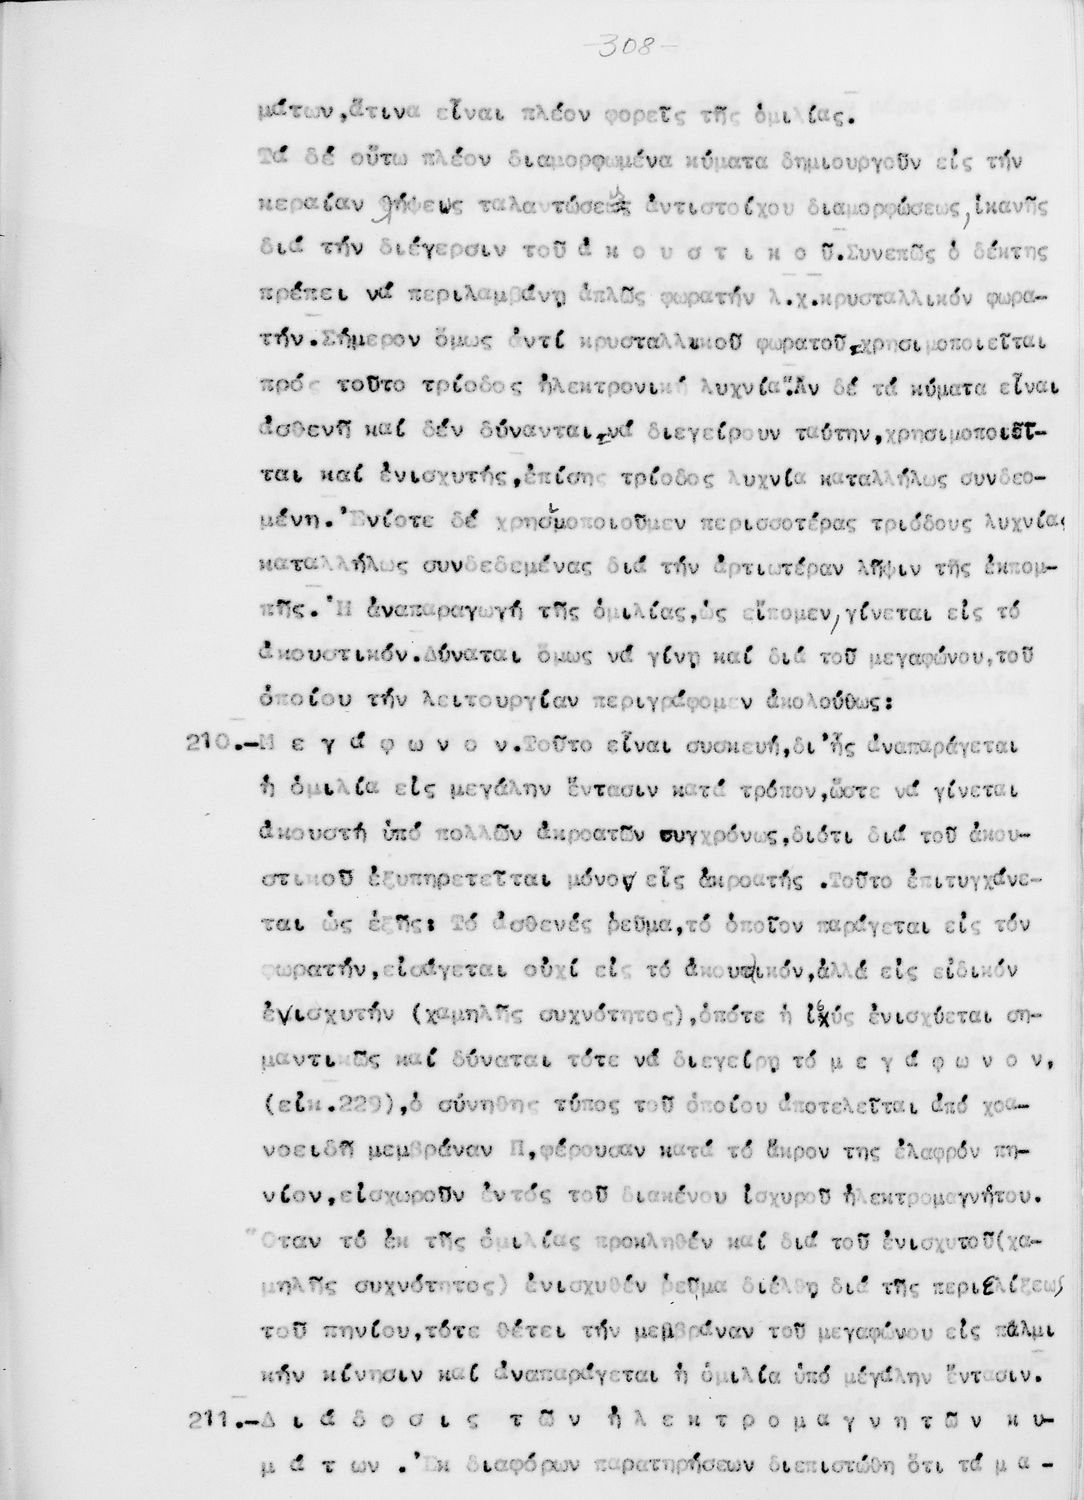 -308-
μάτων,ἅτινα εἶναι πλέον φορεῖς τῆς ὁμιλίας.
Τά δέ οὕτω πλέον διαμορφωμένα κύματα δημιουργοῦν εἰς τήν
κεραίαν λήψεως ταλαντώσεις ἀντιστοίχου διαμορφώσεως,ἱκανῆς
διά τήν διέγερσιν τοῦ ἀ κ ο υ σ τ ι κ ο ῦ.Συνεπῶς ὁ δέκτης
πρέπει νά περιλαμβάνῃ ἁπλῶς φωρατήν λ.χ.κρυσταλλικόν φωρα-
τήν.Σήμερον ὅμως ἀντί κρυσταλλικοῦ φωρατοῦ, χρησιμοποιεῖται
πρός τοῦτο τρίοδος ἠλεκτρονική λυχνία.Ἄν δέ τά κύματα εἶναι
ἀσθενῆ καί δέν δύνανται νά διεγείρουν ταύτην,χρησιμοποιεῖ-
ται καί ἐνισχυτής,ἐπίσης τρίοδος λυχνία καταλλήλως συνδεο-
μένη.Ἐνίοτε δέ χρησιμοποιοῦμεν περισσοτέρας τριόδους λυχνίας
καταλλήλως συνδεδεμένας διά τήν ἀρτιωτέραν λῆψιν τῆς ἐκπομ-
πῆς.Ἡ ἀναπαραγωγή τῆς ὁμιλίας,ὡς εἴπομεν,γίνεται εἰς τό
ἀκουστικόν.Δύναται ὅμως νά γίνῃ καί διά τοῦ μεγαφώνου,τοῦ
ὁποίου τήν λειτουργίαν περιγράφομεν ἀκολούθως:
210.-Μ ε γ ά φ ω ν ο ν.Τοῦτο εἶναι συσκευή,δι'ἧς ἀναπαράγεται
ἡ ὁμιλία εἰς μεγάλην ἔντασιν κατά τρόπον,ὥστε νά γίνεται
ἀκουστή ὑπό πολλῶν ἀκροατῶν συγχρόνως,διότι διά τοῦ ἀκου-
στικοῦ ἐξυπηρετεῖται μόνον εἷς ἀκροατής .Τοῦτο ἐπιτυγχάνε-
ται ὡς ἑξῆς: Τό ἀσθενές ῥεῦμα,τό ὁποῖον παράγεται εἰς τόν
φωρατήν,εἰσάγεται οὐχί εἰς τό ἀκουστικόν,ἀλλά εἰς εἰδικόν
ἐνισχυτήν (χαμηλῆς συχνότητος),ὁπότε ἡ ἰσχύς ἐνισχύεται ση-
μαντικῶς καί δύναται τότε νά διεγείρῃ τό μ ε γ ά φ ω ν ο ν,
(εἰκ.229),ὁ σύνηθης τύπος τοῦ ὁποίου ἀποτελεῖται ἀπό χοα-
νοειδῆ μεμβράναν Π,φέρουσαν κατά τό ἄκρον της ἐλαφρόν πη-
νίον,εἰσχωροῦν ἐντός τοῦ διακένου ἰσχυροῦ ἠλεκτρομαγνήτου.
Ὅταν τό ἐκ τῆς ὁμιλίας προκληθέν καί διά τοῦ ἐνισχυτοῦ(χα-
μηλῆς συχνότητος) ἐνισχυθέν ῥεῦμα διέλθῃ διά τῆς περιελίξεως
τοῦ πηνίου,τότε θέτει τήν μεμβράναν τοῦ μεγαφώνου εἰς παλμι
κήν κίνησιν καί ἀναπαράγεται ἡ ὁμιλία ὑπό μέγάλην ἔντασιν.
211.-Δ ι ά δ ο σ ι ς τ ῶ ν ἠ λ ε κ τ ρ ο μ α γ ν η τ ῶ ν κ υ-
μ ά τ ων .Ἐκ διαφόρων παρατηρήσεων διεπιστώθη ὅτι τά μ α -